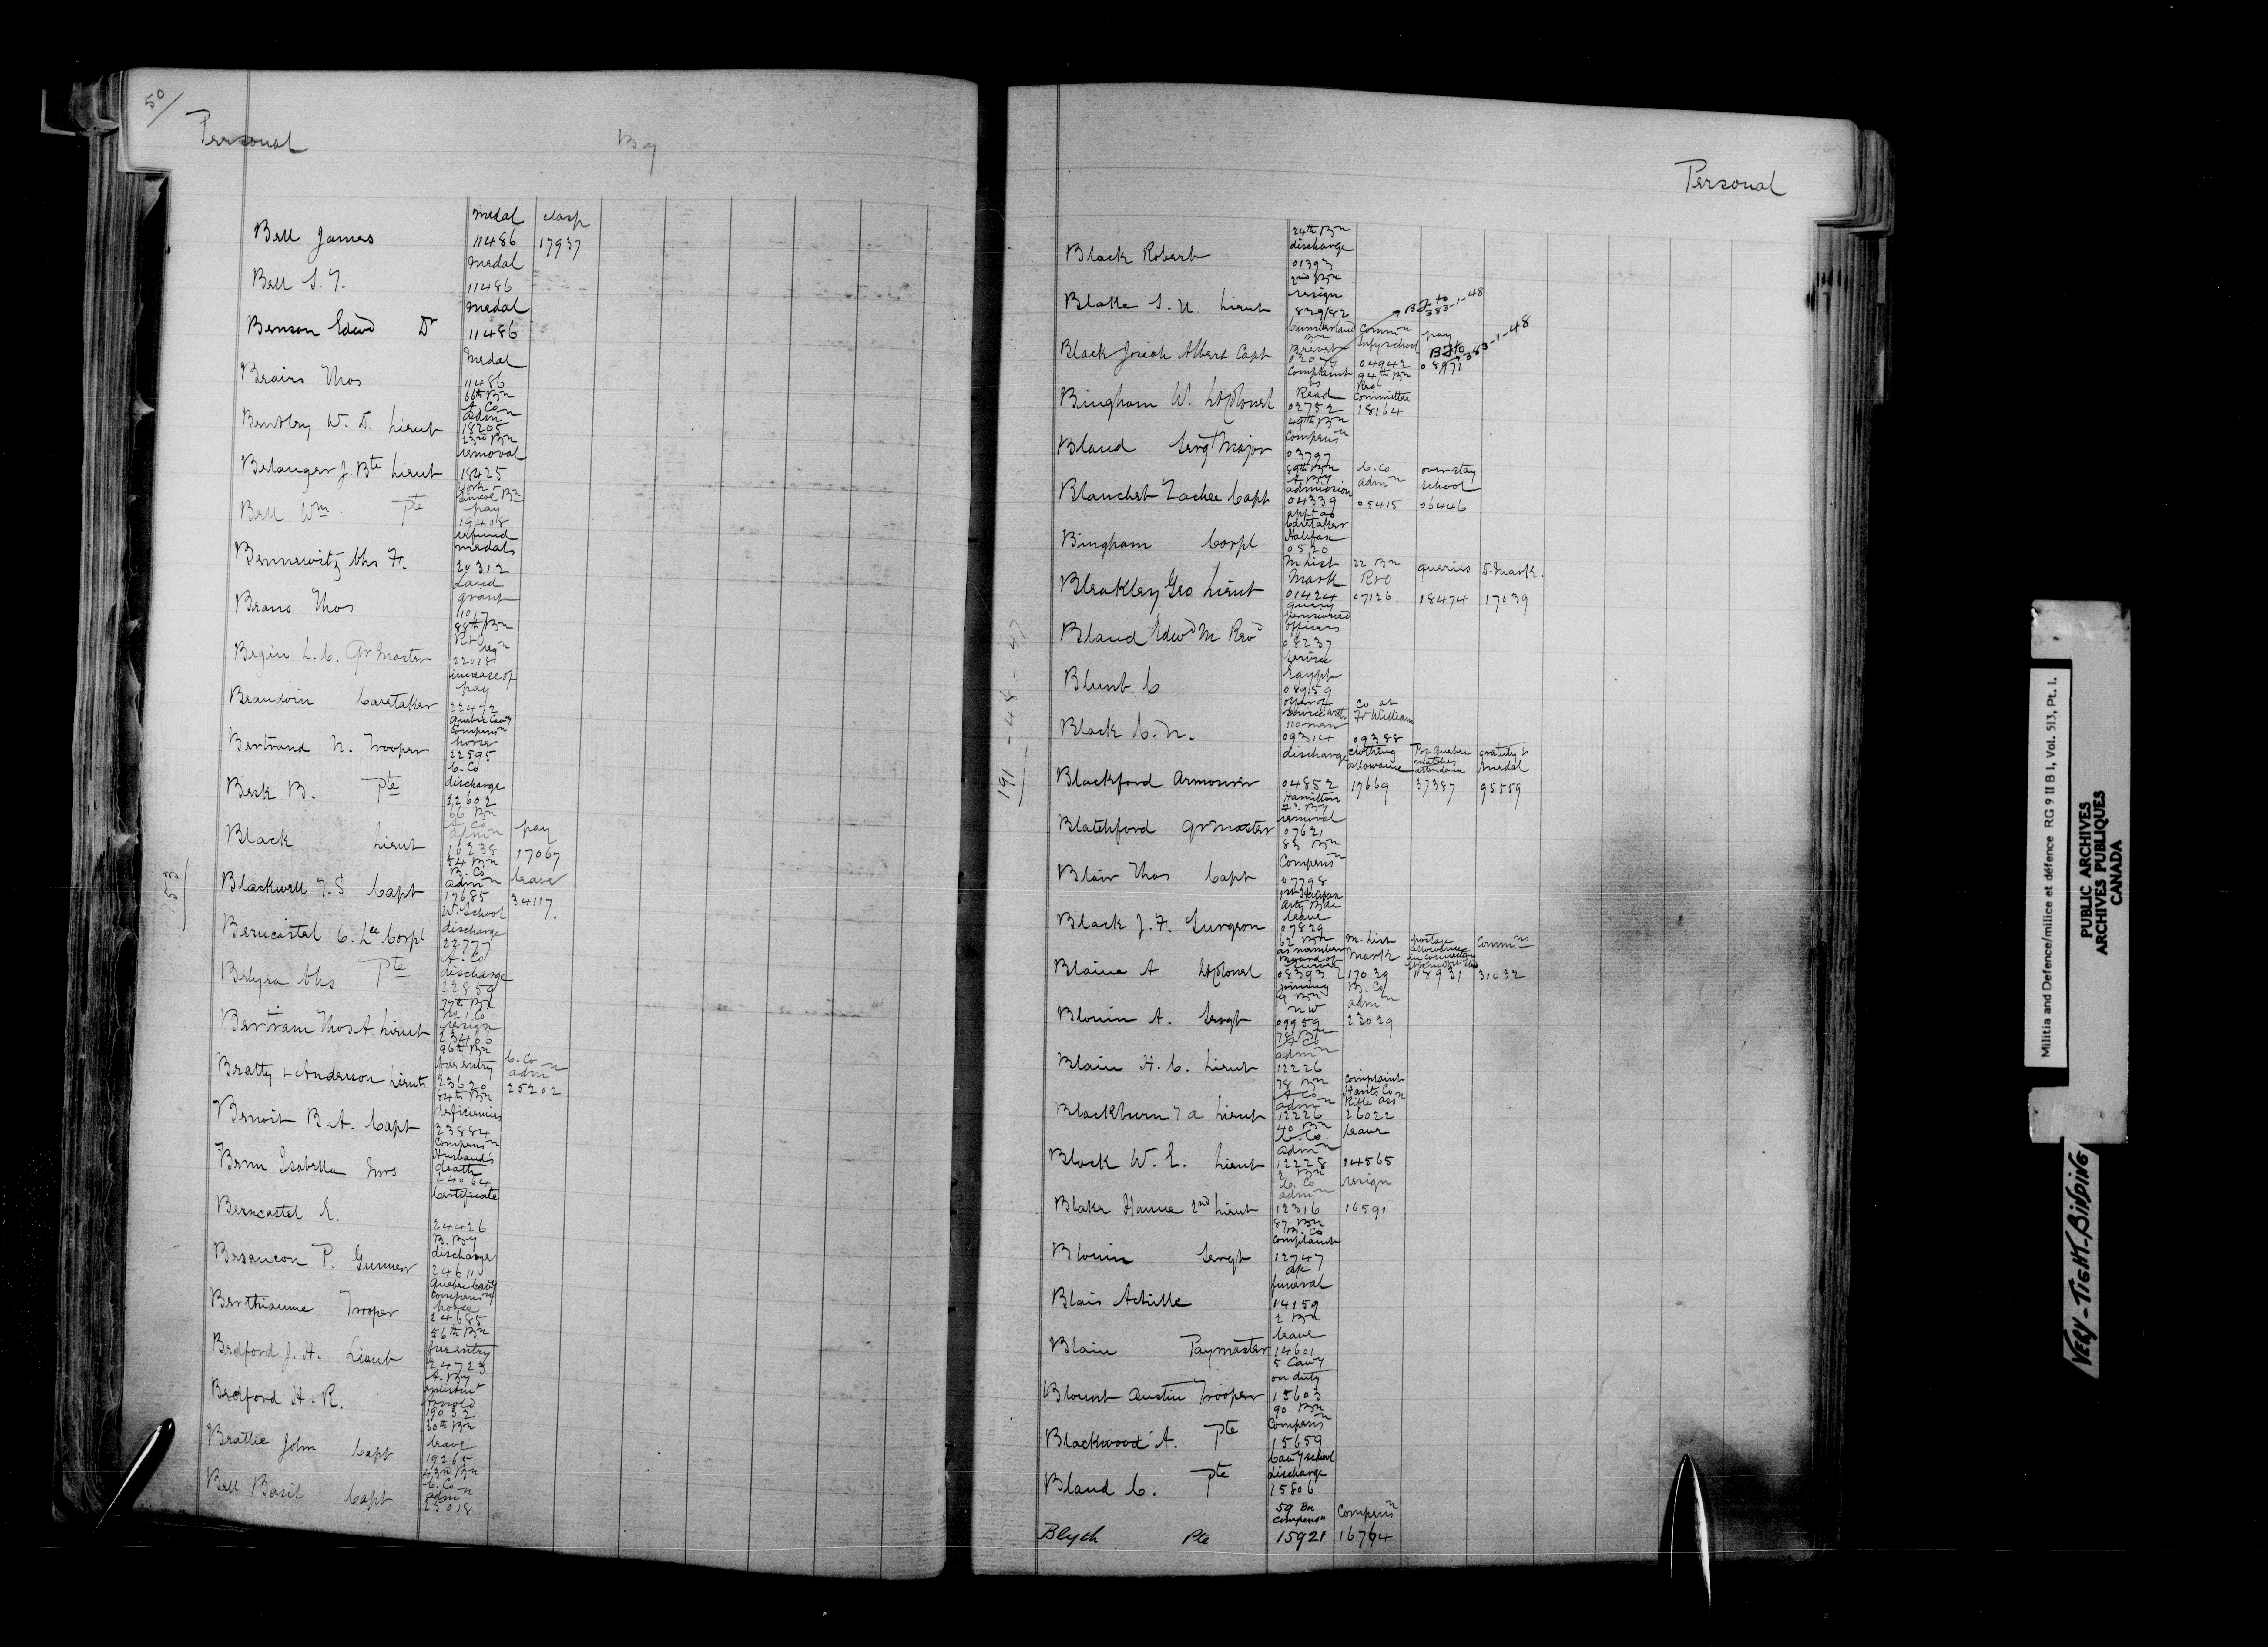 50/
Personal
Bell James
medal
11486
clasp
17937
Bell S. T.
medal
11486
Benson Edwd Dr
medal
11486
Medal
11486
Bentley W. D. Lieut
66th Bn
A. Co
admn
18205
Belanger J. Bte Lieut
23rd Bn
removal
18425
Bell Wm. Pte
York &
Simcoe Bn
pay
19408
Bennewitz Chs F.
refund
medals
20312
Thos
Land
grant
11017
Begin L. C. Qr Master
88th Bn
R&O
reqn
22018
Beaudoin Caretaker
increase of
pay
22472
Bertrand N. Trooper
Quebec Cavy
Compensn
horse
22595
Besk B. Pte
C. Co
discharge
22602
Black Lieut
66 Bn
A Co
admn
16238
pay
17067
153
Blackwell T. S Capt
54 Bn
B. Co
admn
17685
leave
34117.
Berncastel C. Lce Corpl
W. School
discharge
22777
Chs Pte
A. Co
discharge
22859
Bertram Thos A. Lieut
77th Bn
No 1 Co
resign
23406
Beatty & Anderson Lieuts
96th Bn
23620
C. Co
admn
25202
Benoit B. A. Capt
84th Bn
deficiencies
23884
Isabella Mrs
Compensn
Husband's
death
24064
Berncastel E.
Certificate
24426
Besancon P. Gunner
B. By
discharge
24611
Berthiaume Trooper
Quebec Cavy
Compensn
horse
24685
Bedford J. H. Lieut
56th Bn
24723
Bedford H. R.
A. By
19032
Beattie John Capt
30th Bn
leave
19265
Bell Basil Capt
43rd Bn
C. Co
admn
25018
Personal
Black Robert
24th Bn
discharge
01393
Blake S. U. Lieut
2nd Bn
resign
829/82
BF to
383-1-48
Black Josiah Albert Capt
Cumberland
Bn
Brevet
Commn
Infy school
04942
pay
08971
BF to
383-1-48
Bingham W. Lt Colonel
Complaint
as
Read
02752
94th Bn
Regl
Committee
18164
Bland Sergt Major
49th Bn
Compensn
03797
Blanchet Zachee Capt
89th Bn
A By
admission
04339
C. Co
admn
05415
overstay
school
06446
Bingham Corpl
appt as
Caretaker
Halifax
0520
Bleakley Geo Lieut
M List
Mark
01424
22 Bn
R&O
07126.
queries
18474
D. Mark.
17039
Bland Edwd M Revd
query
pensioned
officers
08237
Blunt C
service
Egypt
08959
191-48-47
Black C. N.
offer of
service with
100 men
09314
Co at
Ft William
09388
Blackford Armourer
discharge
04852
clothing
allowance
17669
For Quebec
matches
attendance
37387
gratuity &
medal
95559
Blatchford Qr Master
Hamilton
F. By
removal
07621
Blair Thos Capt
83 Bn
Compensn
07798
Black J. F. Surgeon
1st Halifax
Arty Bde
leave
07829
Blaine A Lt Colonel
62 Bn
as member
Board of
08393
M. List
Mark
17039
postage
allowance
in connection
18921
Commns
31032
Blouin A. Sergt
joining
9 Bn
NW
09959
B. Co
admn
23029
Blain H. C. Lieut
78 Bn
A. Co
admn
12226
Blackburn T A Lieut
78 Bn
A Co
admn
12226
complaint
Hants Co
Rifle Assn
26022
Black W. E. Lieut
40 Bn
C. Co.
admn
12228
leave
14565
Blake Hume 2nd Lieut
2 Bn
C. Co
admn
12316
resign
16591
Blouin Sergt
87 Bn
B. Co
complaint
12747
Blais Achille
funeral
14159
Blain Paymaster
2 Bn
leave
14601
Blount Austin Trooper
5 Cavy
on duty
15603
Blackwood A. Pte
90 Bn
Compensn
15659
Bland C. Pte
Cavy school
discharge
15806
Blych Pte
59 Bn
Compensn
15921
Compensn
16764
Militia and Defence/milice et défence RG 9 II B 1, Vol. 513, Pt. 1.
PUBLIC ARCHIVES
ARCHIVES PUBLIQUES
CANADA
VERY-TIGHT-BINDING